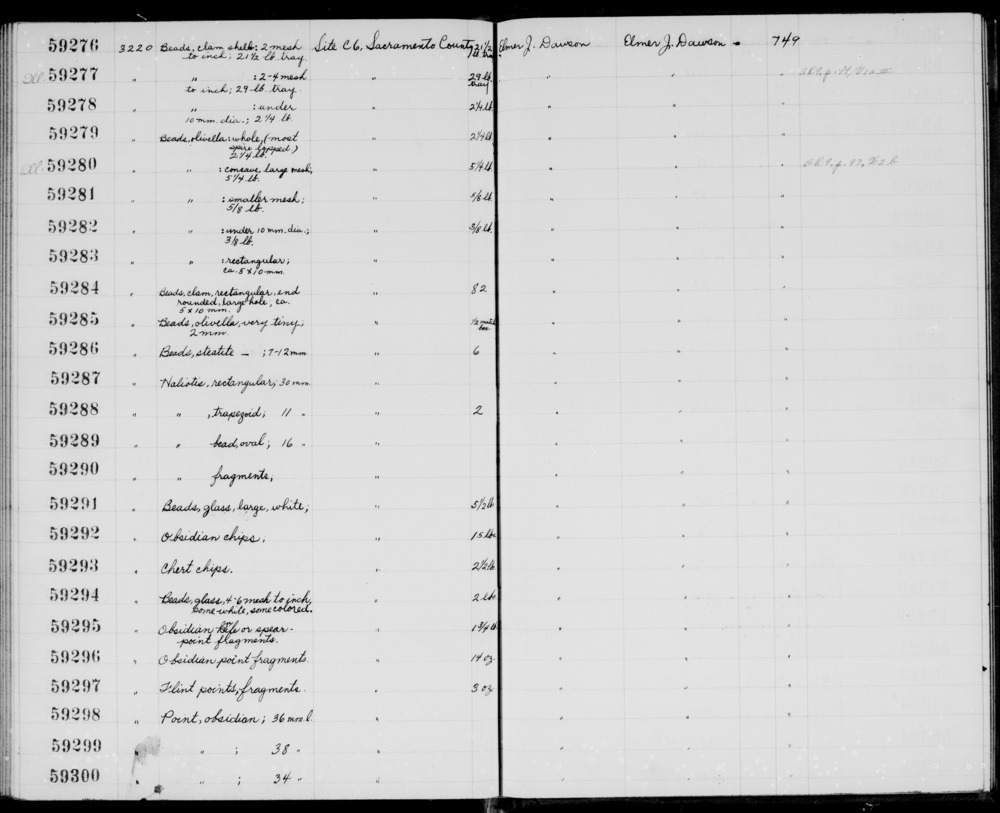 59276 3220 Beads, clam shell: 2 mesh Site C6, Sacramento County 21 1/2 lb tray Elmer J. Dawson Elmer J. Dawson 749
to inch; 21 1/2 lb tray.
Ill. 59277 " " : 2-4 mesh " 29 lb. tray " " "
to inch; 29 lb. tray.
59278 " " : under " 2 1/4 lb " " "
10 mm. dia.; 2 1/4 lb.
59279 " Beads, olivella: whole, (most " 2 1/4 lb " " "
spire lopped)
2 1/4 lb.
Ill. 59280 " " : concave, large mesh; " 5 1/4 lb. " " "
5 1/4 lb.
59281 " " : smaller mesh; " 5/8 lb. " " "
5/8 lb.
59282 " " : under 10 mm. dia.; " 3/8 lb. " " "
3/8 lb.
59283 " " : rectangular; " " " "
ca. 5 x 10 mm.
59284 " Beads, clam, rectangular, end " 82 " " "
rounded, large hole, ca.
5 x 10 mm.
59285 " Beads, olivella, very tiny; " 1/2 match box " " "
2 mm.
59286 " Beads, steatite — ; 7-12 mm " 6 " " "
59287 " Haliotis, rectangular; 30 mm. " " " "
59288 " " , trapezoid; 11 " " 2 " " "
59289 " " bead, oval; 16 " " " " "
59290 " " fragments; " " " "
59291 " Beads, glass, large, white; " 5 1/2 lb. " " "
59292 " Obsidian chips; " 15 lbs. " " "
59293 " Chert chips. " 2 1/2 lb " " "
59294 " Beads, glass, 4-6 mesh to inch, " 2 lbs " " "
some white, some colored.
59295 " Obsidian or spear- " 1 3/4 lb " " "
point fragments.
59296 " Obsidian point fragments. " 14 oz. " " "
59297 " Flint points, fragments. " 3 oz " " "
59298 " Point, obsidian; 36 mm. l. " " " "
59299 " " ; 38 " " " " "
59300 " " ; 34 " " " " "